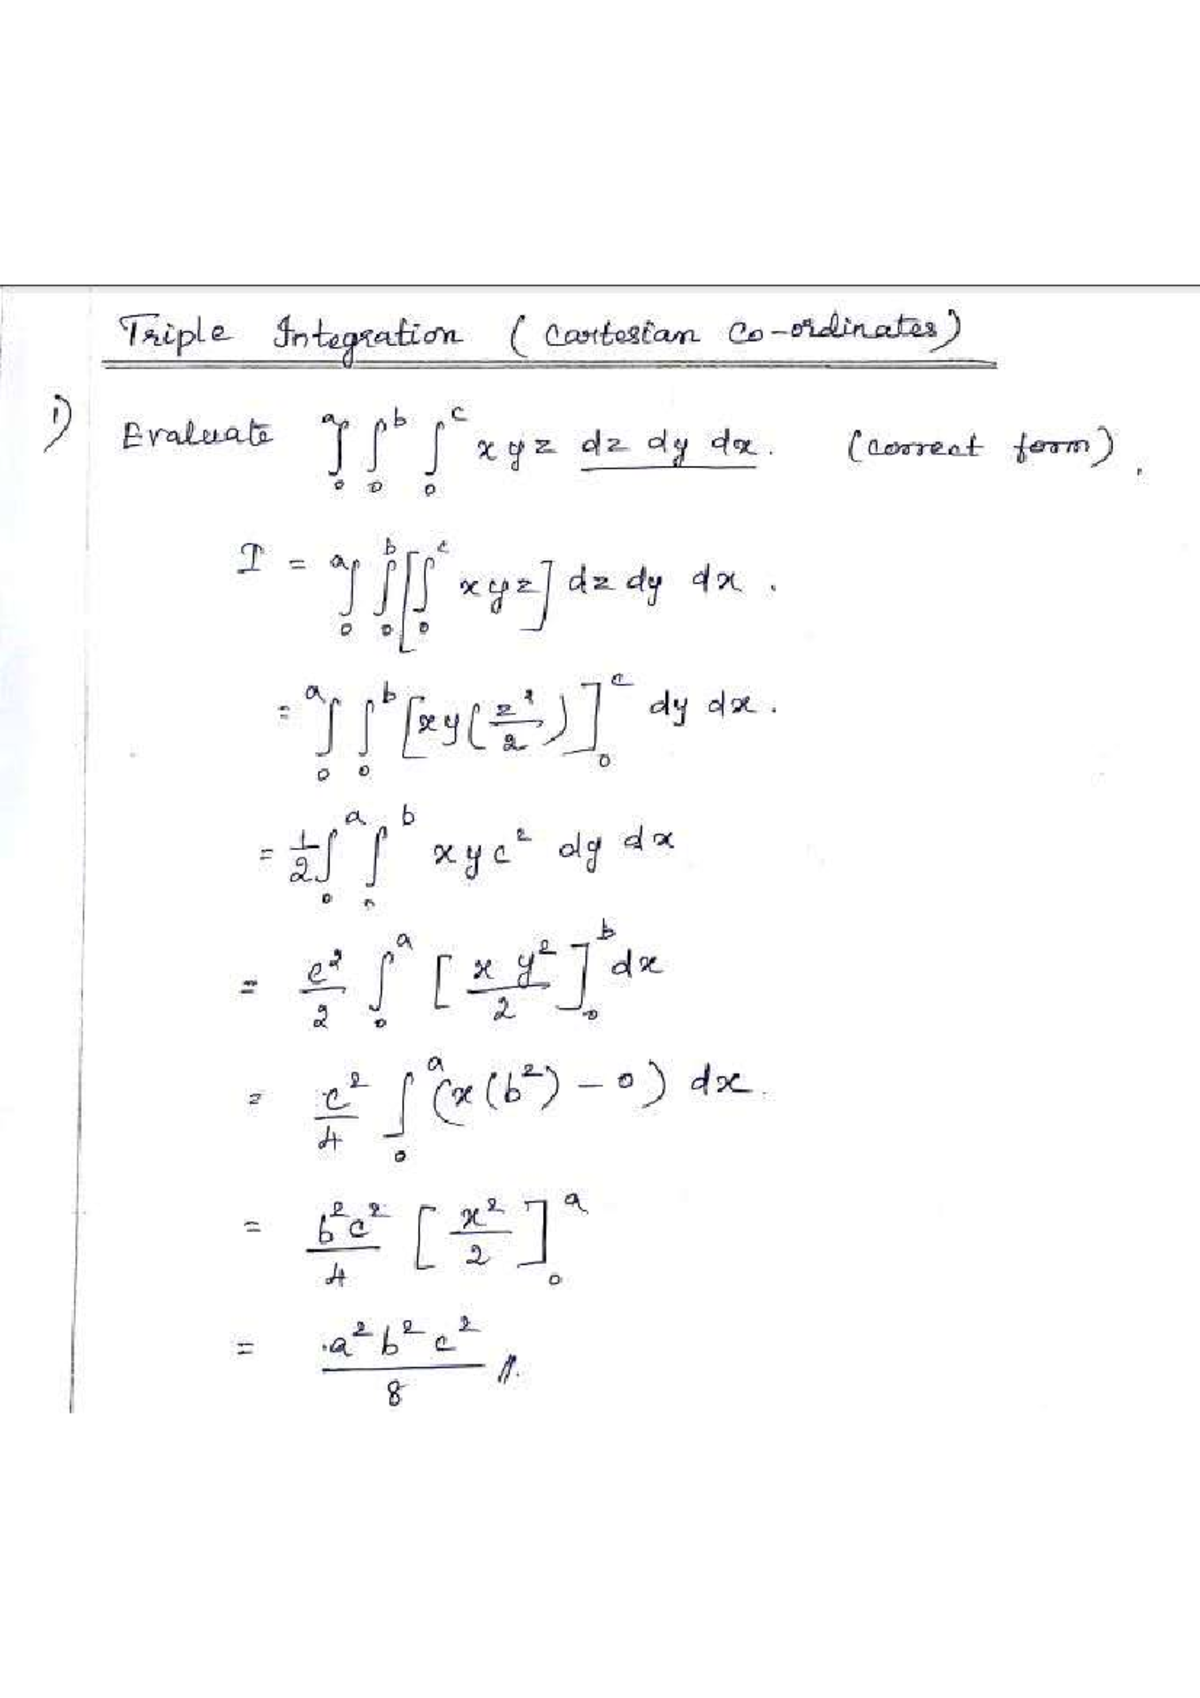 Triple Integration (Cartesian Co-ordinates)
1) Evaluate ∫₀ᵃ ∫₀ᵇ ∫₀ᶜ xyz dz dy dx. (Correct form).
I = ∫₀ᵃ ∫₀ᵇ [∫₀ᶜ xyz] dz dy dx.
= ∫₀ᵃ ∫₀ᵇ [xy(z²/2)]₀ᶜ dy dx.
= 1/2 ∫₀ᵃ ∫₀ᵇ xyc² dy dx
= c²/2 ∫₀ᵃ [xy²/2]₀ᵇ dx
= c²/4 ∫₀ᵃ (x(b²) - 0) dx.
= b²c²/4 [x²/2]₀ᵃ
= a²b²c²/8 //.